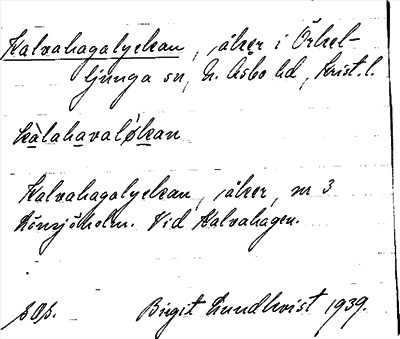 Kalvahagalyckan, åker i Örkel-
ljunga sn, N. Åsbo hd, Krist. l.
kàlahavaløkan
Kalvahagalyckan, åker, nr 3
Rönsjöholm. Vid Kalvahagen.
Birgit Lundkvist 1939.